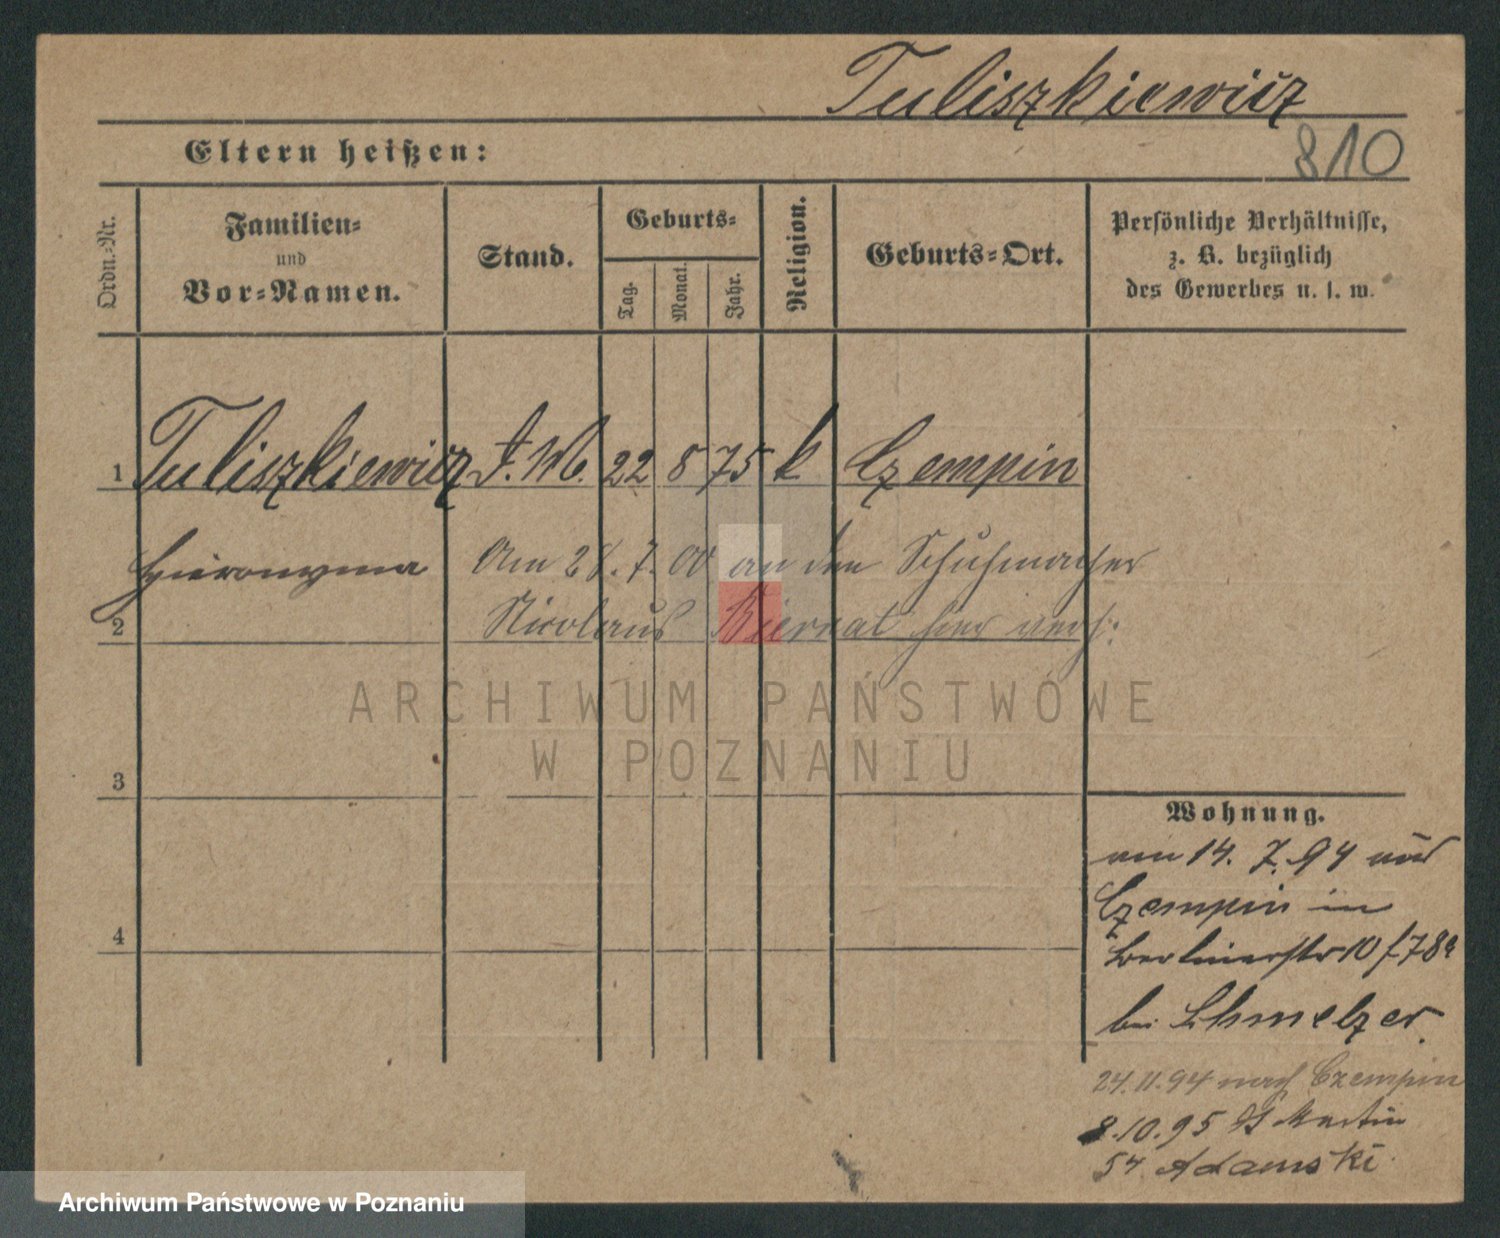 Tuliszkiewicz
810
Eltern heißen:
Ordn.-Nr.
Familien-
und
Vor-Namen.
Stand.
Geburts-
Tag.
Monat.
Jahr.
Religion.
Geburts-Ort.
Persönliche Verhältnisse,
z. B. bezüglich
des Gewerbes u. s. w.
1 Tuliszkiewicz 22 8 75 k Czempin
Hieronyma Am 28. 7. 00 an den Schuhmacher
2 Nicolaus Biernat hier verh:
3
4
Wohnung.
am 14. 7. 94 aus
Czempin in
Berlinerstr 10
bei Schmelzer
24.11.94 nach Czempin
8.10.95 St Martin
54 Adamski
ARCHIWUM PAŃSTWOWE
W POZNANIU
Archiwum Państwowe w Poznaniu